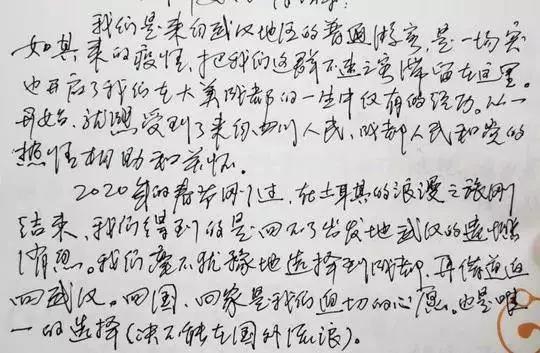 我们是来自武汉地区的普通游客,是一场突
如其来的疫情,把我们这群不速之客滞留在这里。
也开启了我们在大美成都的一生中仅有的经历。从一
开始,就感受到了来自四川人民、成都人民和党的
热情相助和关怀。
2020年的春节刚过,在土耳其的浪漫之旅刚
结束,我们得到的是回不了出发地武汉的遗憾
信息。我们毫不犹豫地选择到成都,再借道迫
回武汉。回国、回家是我们迫切的心愿。也是唯
一的选择(决不能在国外流浪)。